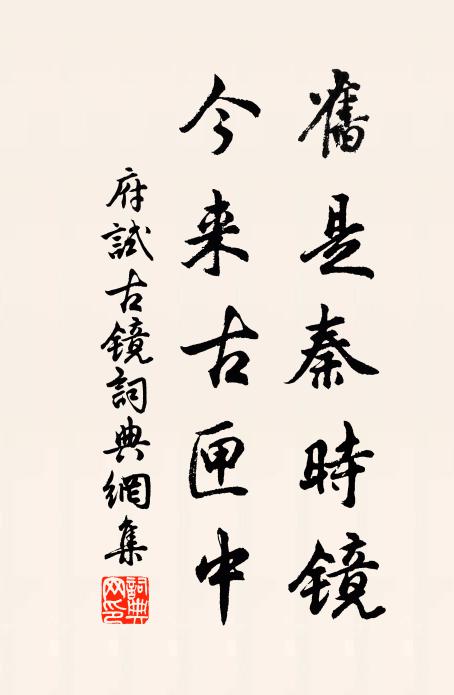 舊是秦時鏡
今来古匣中
府試古镜詞典網集
詞典网印